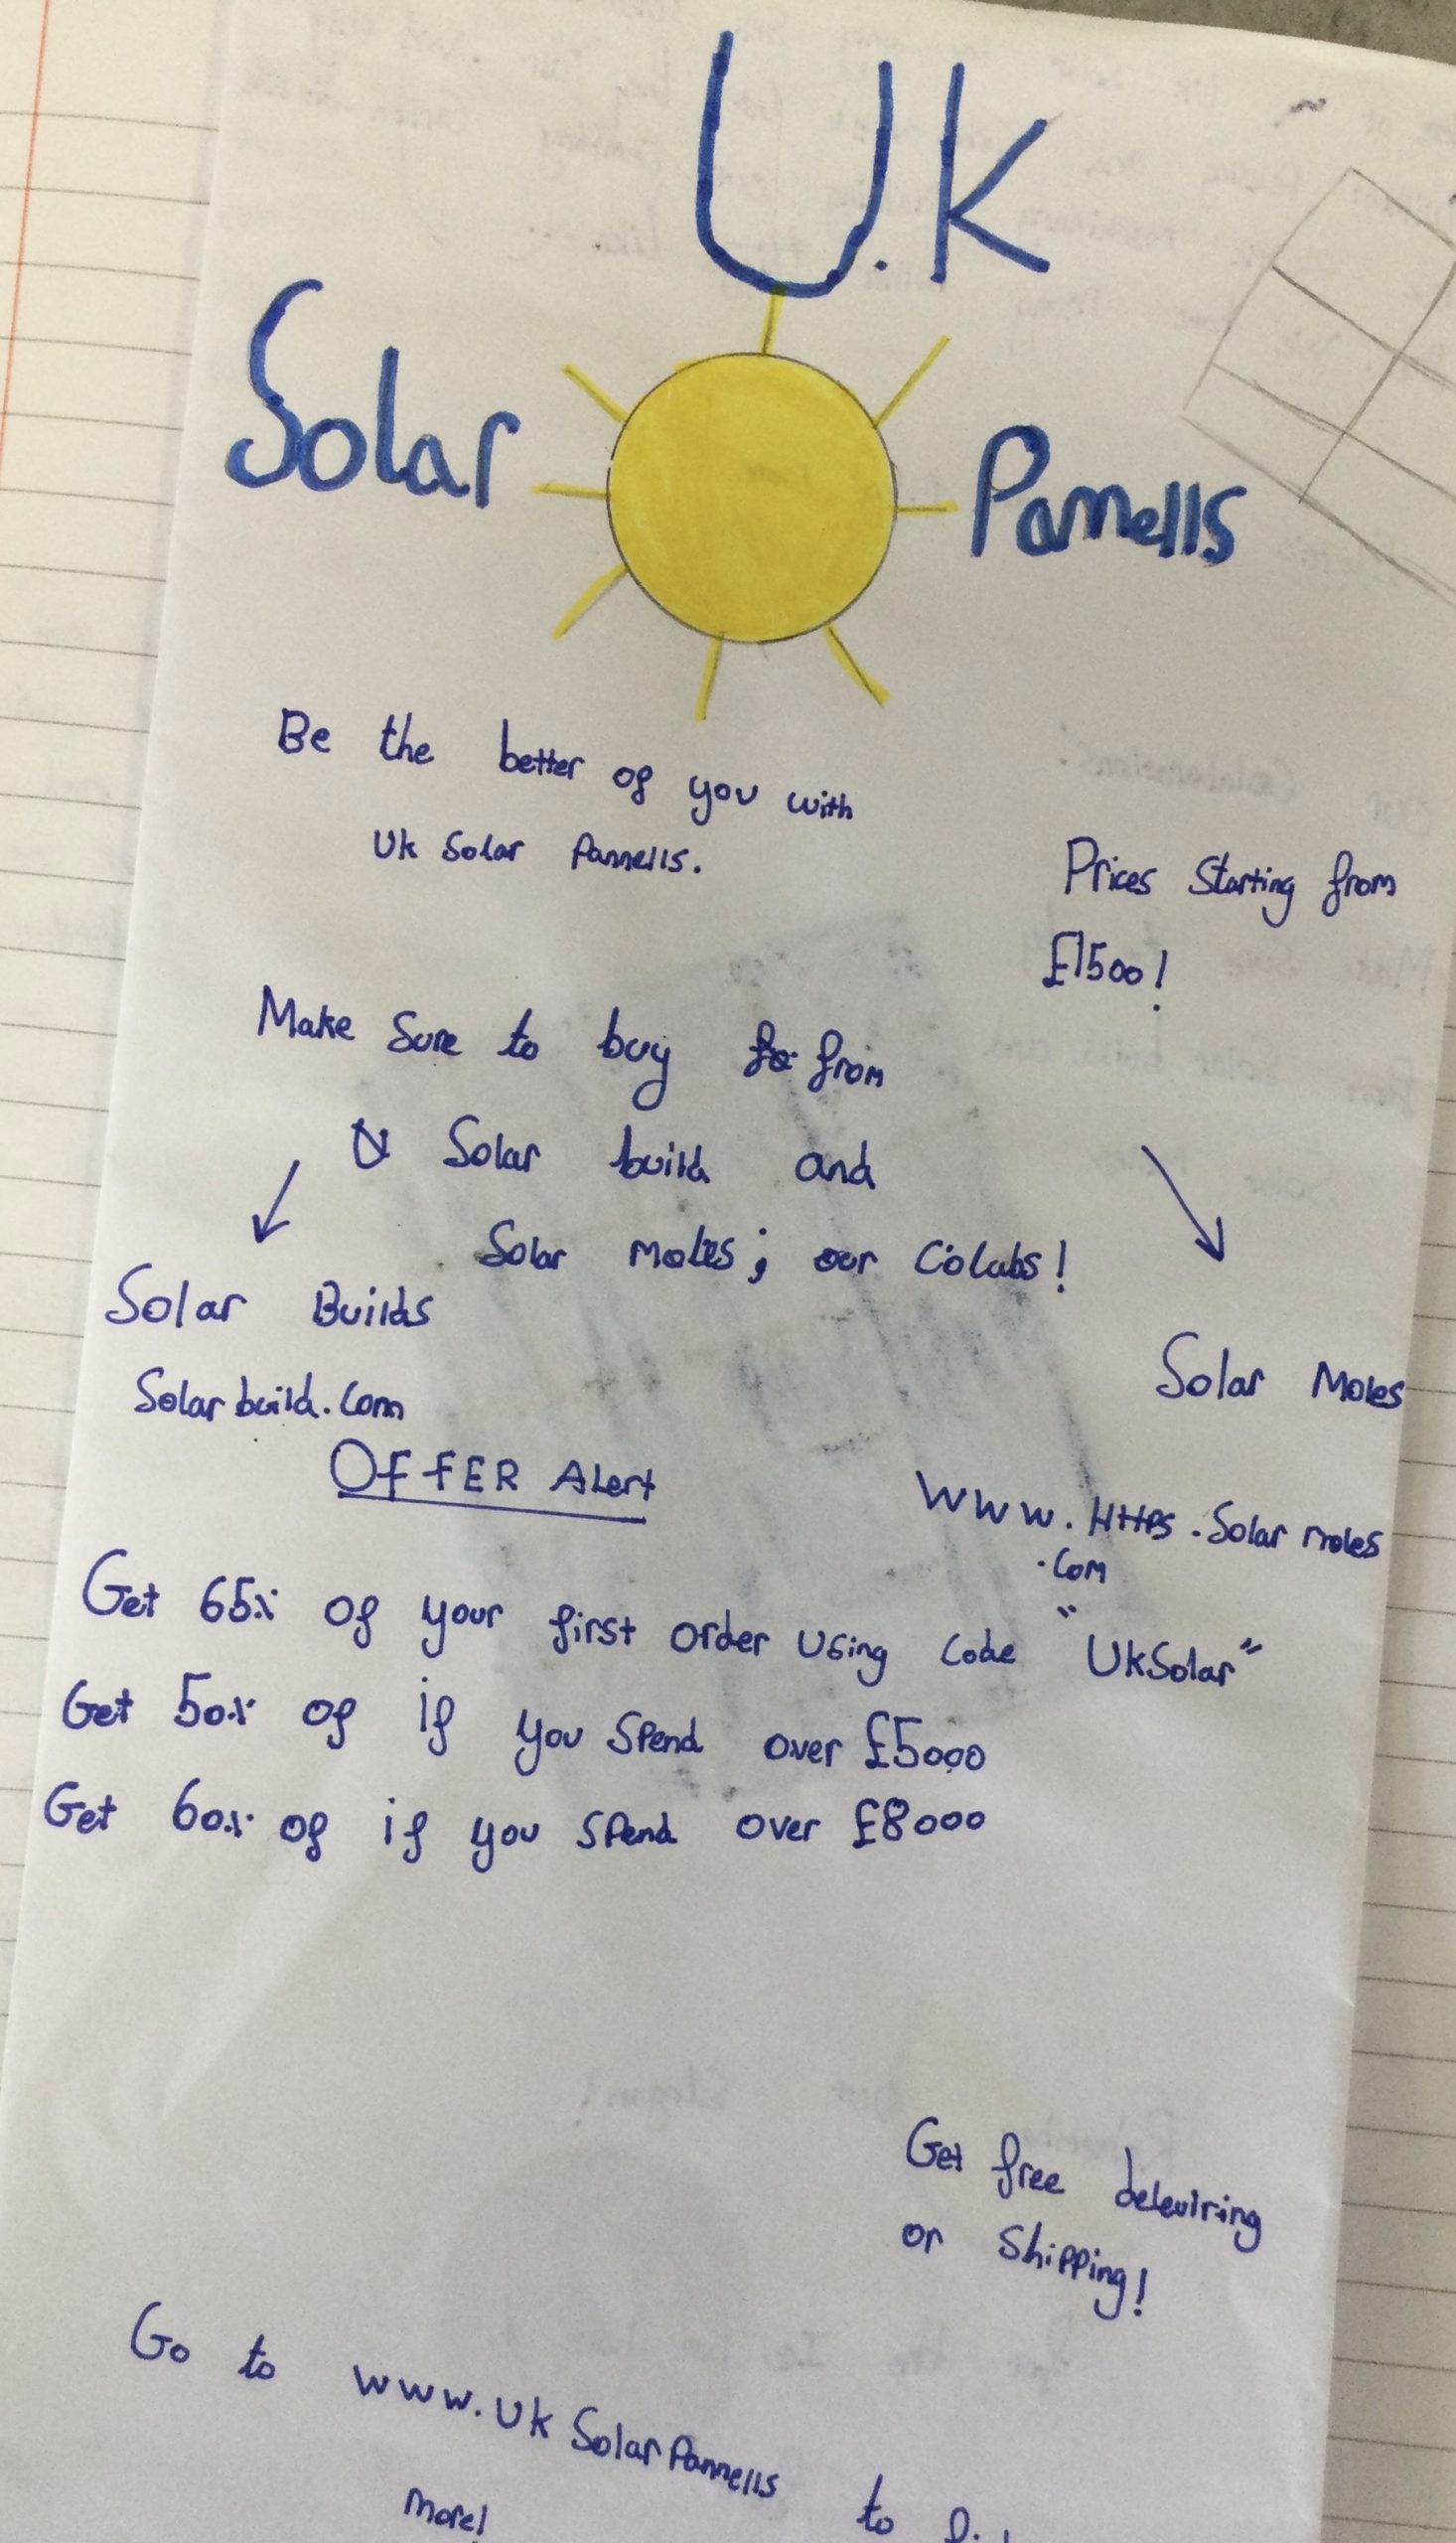 U.K
Solar Pannells
Be the better of you with
Uk Solar Pannells.
Prices Starting from
£1500!
Make Sure to buy from
Solar build and
Solar moles; our Colabs!
Solar Builds
Solarbuild.com
Solar Moles
www.Https.Solarmoles
.com
OFFER Alert
Get 65% of your first order using code "UkSolar"
Get 50% of if you spend over £5000
Get 60% of if you spend over £8000
Get free deleviring
or Shipping!
Go to www.UkSolarPannells to
more!